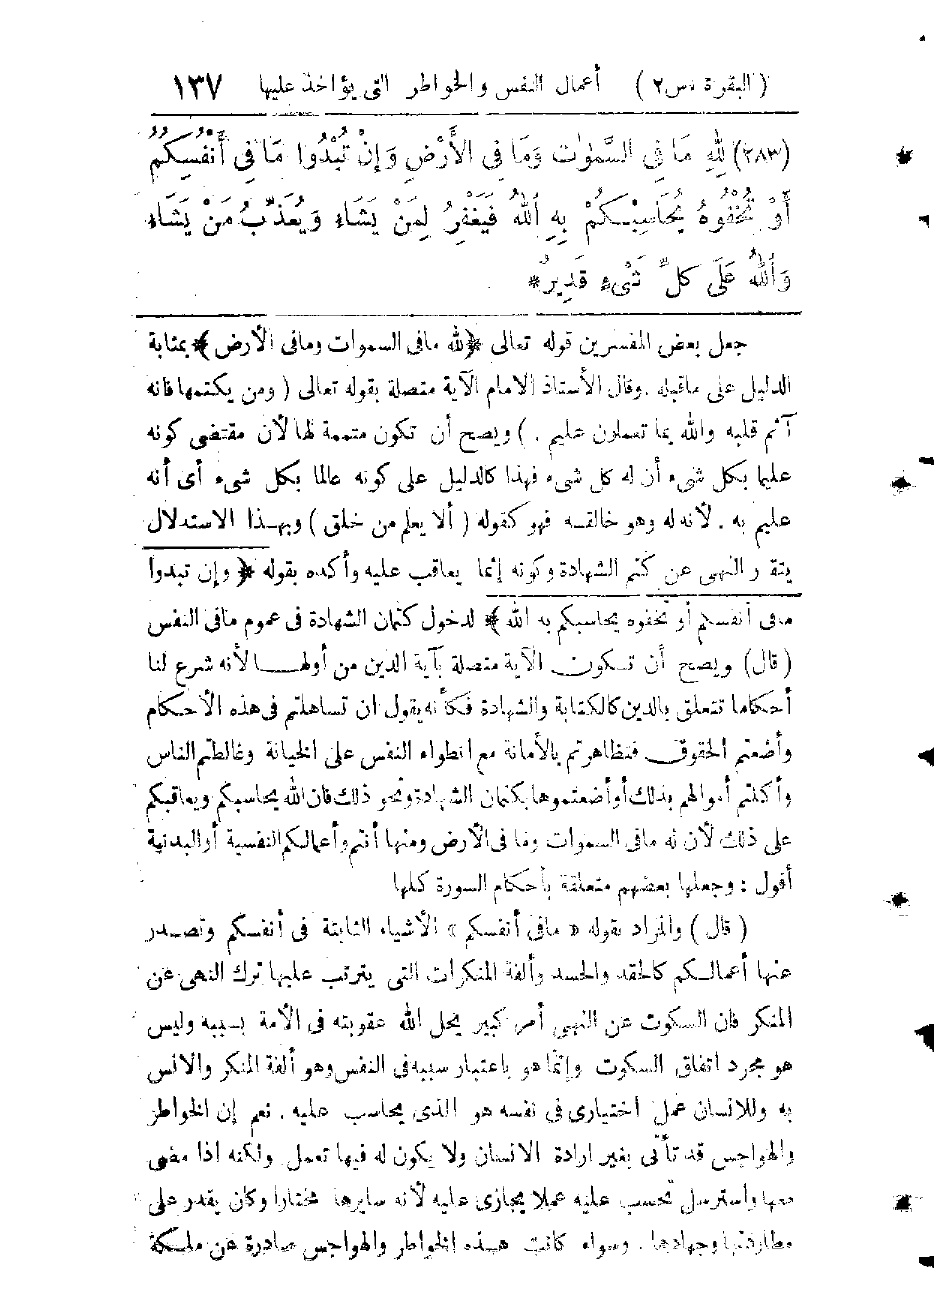 ( البقرة ، س ٢ ) أعمال النفس والخواطر التي يؤاخذ عليها ١٣٧
(٢٨٣) لِلهِ مَا فِي السَّمٰوٰتِ وَمَا فِي الأَرْضِ وَإِنْ تُبْدُوا مَا فِي أَنْفُسِكُمْ
أَوْ تُخْفُوهُ يُحَاسِبْكُمْ بِهِ اللهُ فَيَغْفِرُ لِمَنْ يَشَاءُ وَيُعَذِّبُ مَنْ يَشَاءُ
وَاللهُ عَلَى كُلِّ شَيْءٍ قَدِيرٌ *
جعل بعض المفسرين قوله تعالى ﴿ لله مافي السموات ومافي الأرض ﴾ بمثابة
الدليل على ماقبله . وقال الأستاذ الامام الآية متصلة بقوله تعالى ( ومن يكتمها فانه
آثم قلبه والله بما تعملون عليم . ) ويصح أن تكون متممة لها لأن مقتضى كونه
عليما بكل شيء أن له كل شيء فهذا كالدليل على كونه عالما بكل شيء أي أنه
عليم به . لأنه له وهو خالقه فهو كقوله ( ألا يعلم من خلق ) وبهذا الاستدلال
يتقرر النهي عن كتم الشهادة وكونه إثما يعاقب عليه وأكده بقوله ﴿ وإن تبدوا
مافي أنفسكم أو تخفوه يحاسبكم به الله ﴾ لدخول كتمان الشهادة في عموم مافي النفس
( قال ) ويصح أن تكون الآية متصلة بآية الدين من أولها لأنه شرع لنا
أحكاما تتعلق بالدين كالكتابة والشهادة فكأنه يقول ان تساهلتم في هذه الأحكام
وأضعتم الحقوق فتظاهرتم بالأمانة مع انطواء النفس على الخيانة وغالطتم الناس
وأكلتم أموالهم بذلك أو أضعتموها بكتمان الشهادة ونحو ذلك فان الله يحاسبكم ويعاقبكم
على ذلك لأن له مافي السموات وما في الأرض ومنها أنتم وأعمالكم النفسية أو البدنية
أقول : وجعلها بعضهم متعلقة بأحكام السورة كلها
( قال ) والمراد بقوله « مافي أنفسكم » الأشياء الثابتة في أنفسكم وتصدر
عنها أعمالكم كالحقد والحسد وألفة المنكرات التي يترتب عليها ترك النهي عن
المنكر فان السكوت عن النهي أمر كبير يحل الله عقوبته في الأمة بسببه وليس
هو مجرد اتفاق السكوت وإنما هو باعتبار سببه في النفس وهو ألفة المنكر والانس
به وللانسان عمل اختياري في نفسه هو الذي يحاسب عليه . نعم إن الخواطر
والهواجس قد تأتي بغير ارادة الانسان ولا يكون له فيها تعمل ولكنه اذا مضى
معها واسترسل تحسب عليه عملا يجازى عليه لأنه سايرها مختارا وكان يقدر على
مطاردتها وجهادها . وسواء كانت هذه الخواطر والهواجس صادرة عن ملكة